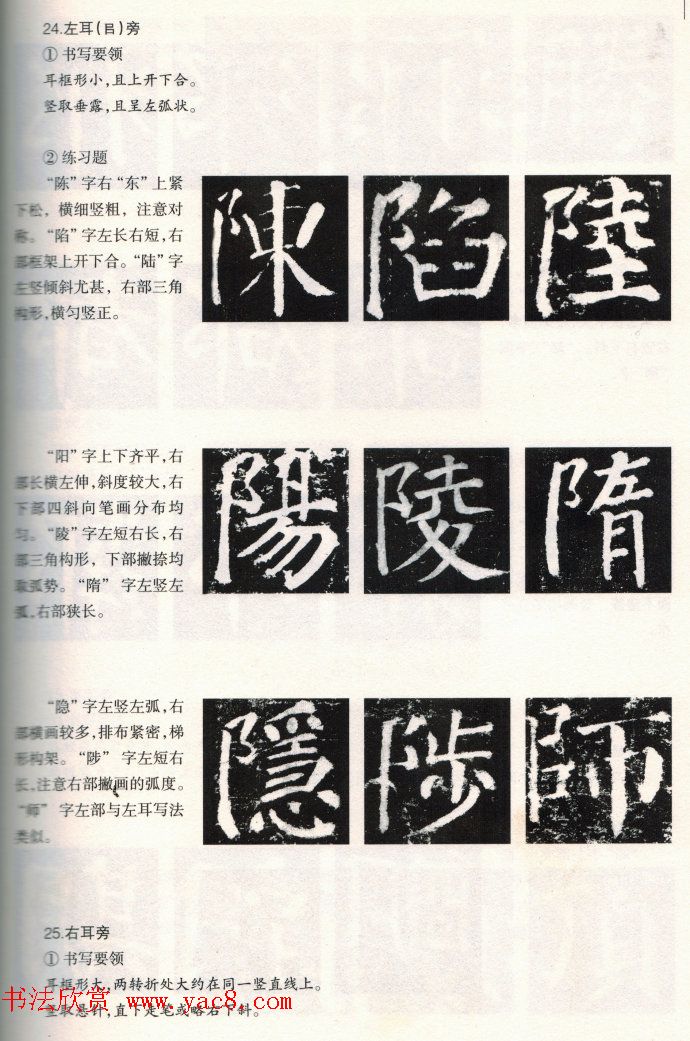 24.左耳(目)旁
① 书写要领
耳框形小,且上开下合。
竖取垂露,且呈左弧状。
② 练习题
“陈”字右“东”上紧
下松，横细竖粗，注意对
称。“陷”字左长右短,右
部框架上开下合。“陆”字
左竖倾斜尤甚，右部三角
构形,横匀竖正。
陳 陷 陸
“阳”字上下齐平,右
部长横左伸,斜度较大,右
下部四斜向笔画分布均
匀。“陵”字左短右长,右
部三角构形，下部撇捺均
取弧势。“隋”字左竖左
弧,右部狭长。
陽 陵 隋
“隐”字左竖左弧,右
部横画较多,排布紧密,梯
形构架。“陟”字左短右
长,注意右部撇画的弧度。
“师”字左部与左耳写法
类似。
隱 陟 師
25.右耳旁
① 书写要领
耳框形大,两转折处大约在同一竖直线上。
竖取悬针,直下走笔或略右下斜。
书法欣赏 www.yac8.com